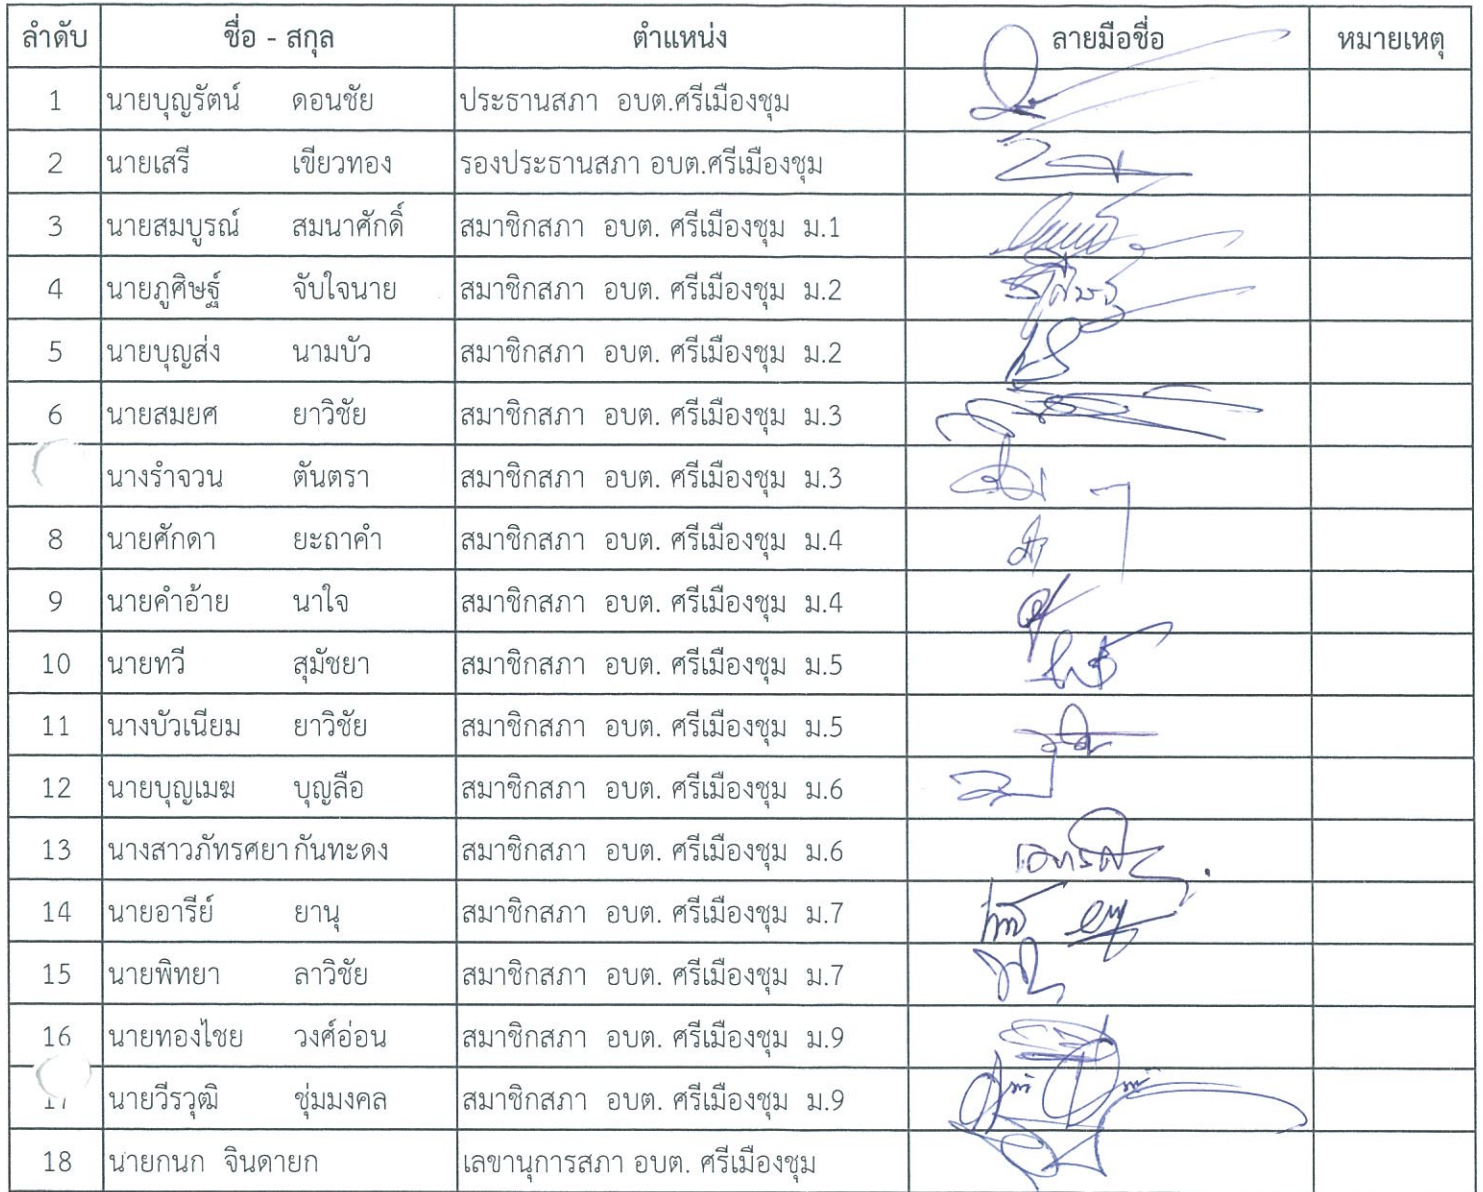 ลำดับ ชื่อ - สกุล ตำแหน่ง ลายมือชื่อ หมายเหตุ
1 นายบุญรัตน์ ดอนชัย ประธานสภา อบต.ศรีเมืองชุม
2 นายเสรี เขียวทอง รองประธานสภา อบต.ศรีเมืองชุม
3 นายสมบูรณ์ สมนาศักดิ์ สมาชิกสภา อบต. ศรีเมืองชุม ม.1
4 นายภูศิษฐ์ จับใจนาย สมาชิกสภา อบต. ศรีเมืองชุม ม.2
5 นายบุญส่ง นามบัว สมาชิกสภา อบต. ศรีเมืองชุม ม.2
6 นายสมยศ ยาวิชัย สมาชิกสภา อบต. ศรีเมืองชุม ม.3
นางรำจวน ตันตรา สมาชิกสภา อบต. ศรีเมืองชุม ม.3
8 นายศักดา ยะถาคำ สมาชิกสภา อบต. ศรีเมืองชุม ม.4
9 นายคำอ้าย นาใจ สมาชิกสภา อบต. ศรีเมืองชุม ม.4
10 นายทวี สุมัชยา สมาชิกสภา อบต. ศรีเมืองชุม ม.5
11 นางบัวเนียม ยาวิชัย สมาชิกสภา อบต. ศรีเมืองชุม ม.5
12 นายบุญเมฆ บุญลือ สมาชิกสภา อบต. ศรีเมืองชุม ม.6
13 นางสาวภัทรศยา กันทะดง สมาชิกสภา อบต. ศรีเมืองชุม ม.6
14 นายอารีย์ ยานุ สมาชิกสภา อบต. ศรีเมืองชุม ม.7
15 นายพิทยา ลาวิชัย สมาชิกสภา อบต. ศรีเมืองชุม ม.7
16 นายทองไชย วงศ์อ่อน สมาชิกสภา อบต. ศรีเมืองชุม ม.9
17 นายวีรวุฒิ ชุ่มมงคล สมาชิกสภา อบต. ศรีเมืองชุม ม.9
18 นายกนก จินดายก เลขานุการสภา อบต. ศรีเมืองชุม